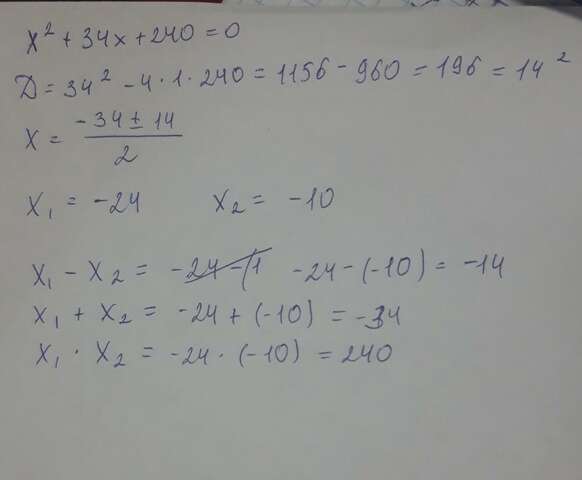 x² + 34x + 240 = 0
D = 34² - 4 · 1 · 240 = 1156 - 960 = 196 = 14²
x = (-34 ± 14)/2
x₁ = -24 x₂ = -10
x₁ - x₂ = -24 - (1 -24 - (-10) = -14
x₁ + x₂ = -24 + (-10) = -34
x₁ · x₂ = -24 · (-10) = 240